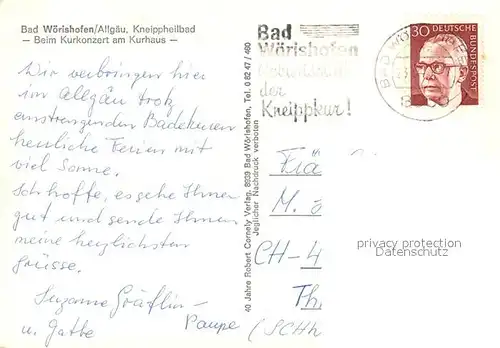 Bad Wörishofen/Allgäu, Kneippheilbad
— Beim Kurkonzert am Kurhaus —
Wir verbringen hier
im Allgäu trotz
anstrengenden Badekuren
herrliche Ferien mit
viel Sonne.
Ich hoffe, es gehe Ihnen
gut und sende Ihnen
meine herzlichsten
Grüsse.
Suzanne Gräflin -
Paupe
u. Gatte
40 Jahre Robert Cornely Verlag, 8939 Bad Wörishofen, Tel. 0 82 47 / 460
Jeglicher Nachdruck verboten
Bad
Wörishofen
der
Kneippkur!
BAD WÖRISHOFEN
30 DEUTSCHE
BUNDESPOST
M.
CH-4
Th.
(SCHW
privacy protection
Datenschutz